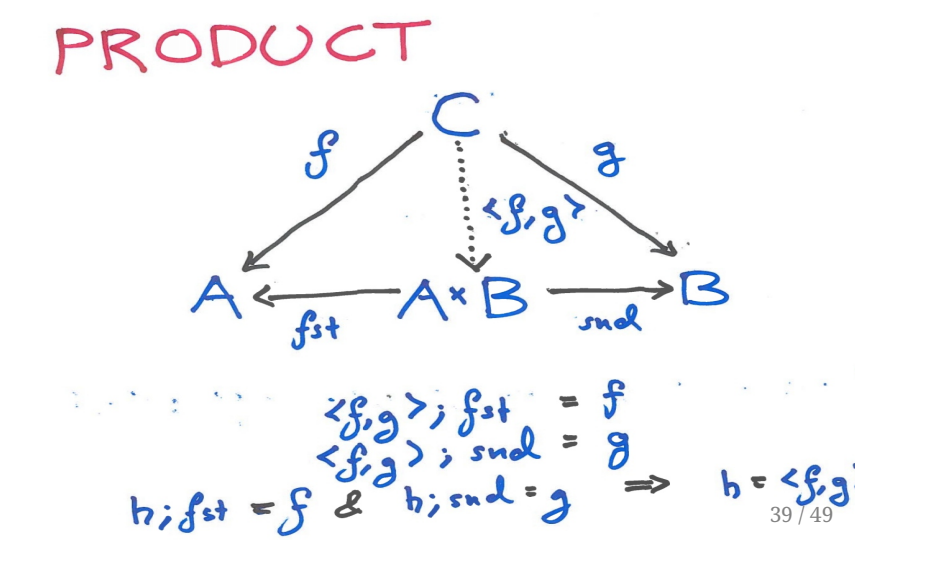 PRODUCT
C
f
g
<f,g>
A
A × B
B
fst
snd
<f,g>; fst = f
<f,g>; snd = g
h; fst = f & h; snd = g ⟹ h = <f,g
39 / 49